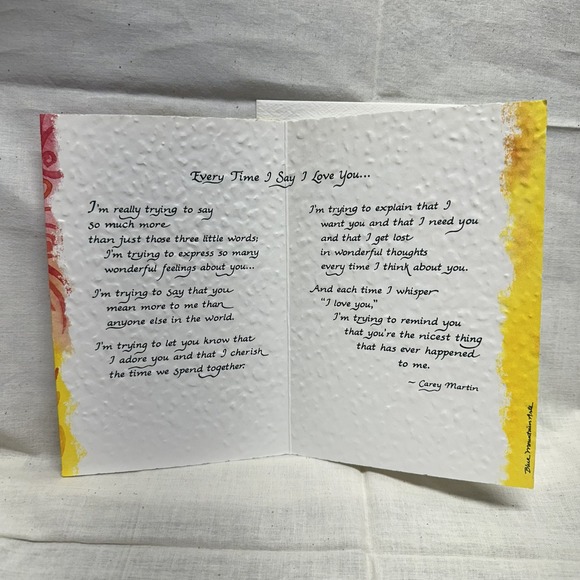 Every Time I Say I Love You...
I'm really trying to say
so much more
than just those three little words;
I'm trying to express so many
wonderful feelings about you...
I'm trying to say that you
mean more to me than
anyone else in the world.
I'm trying to let you know that
I adore you and that I cherish
the time we spend together.
I'm trying to explain that I
want you and that I need you
and that I get lost
in wonderful thoughts
every time I think about you.
And each time I whisper
"I love you,"
I'm trying to remind you
that you're the nicest thing
that has ever happened
to me.
~ Carey Martin
Blue Mountain Arts